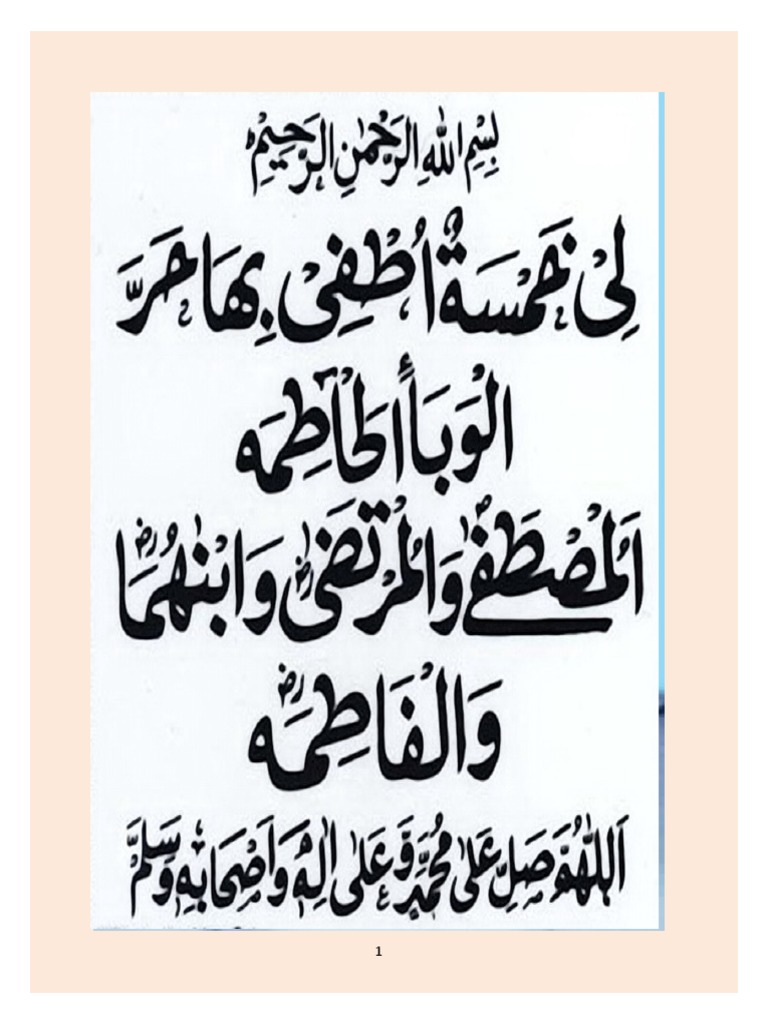 بِسْمِ اللهِ الرَّحْمٰنِ الرَّحِيْمِ
لِيْ خَمْسَةٌ اُطْفِيْ بِهَا حَرَّ
الْوَبَاءِ الْحَاطِمَه
اَلْمُصْطَفٰى وَالْمُرْتَضٰىؓ وَابْنٰهُمَاؓ
وَالْفَاطِمَهؓ
اَللّٰهُمَّ صَلِّ عَلٰى مُحَمَّدٍ وَّعَلٰى اٰلِهٖ وَاَصْحَابِهٖ وَسَلِّمْ
1